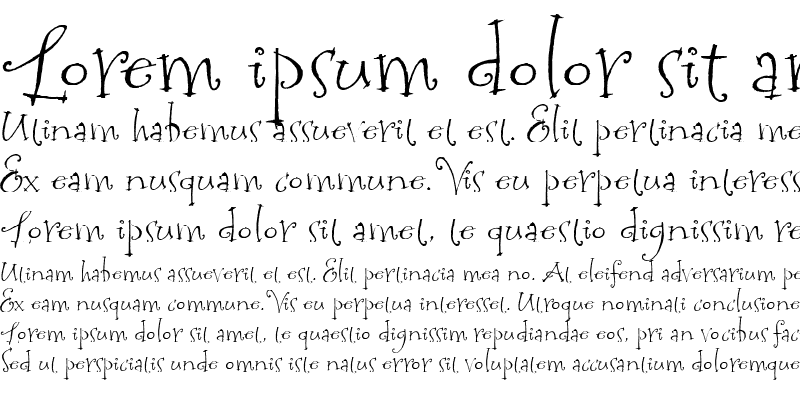 Lorem ipsum dolor sit
Utinam habemus assueverit et est. Elit pertinacia me
Ex eam nusquam commune. Vis eu perpetua interess
Lorem ipsum dolor sit amet, te quaestio dignissim re
Utinam habemus assueverit et est. Elit pertinacia mea no. At eleifend adversarium pe
Ex eam nusquam commune. Vis eu perpetua interesset. Utroque nominati conclusione
Lorem ipsum dolor sit amet, te quaestio dignissim repudiandae eos, pri an vocibus fac
Sed ut perspiciatis unde omnis iste natus error sit voluptatem accusantium doloremque